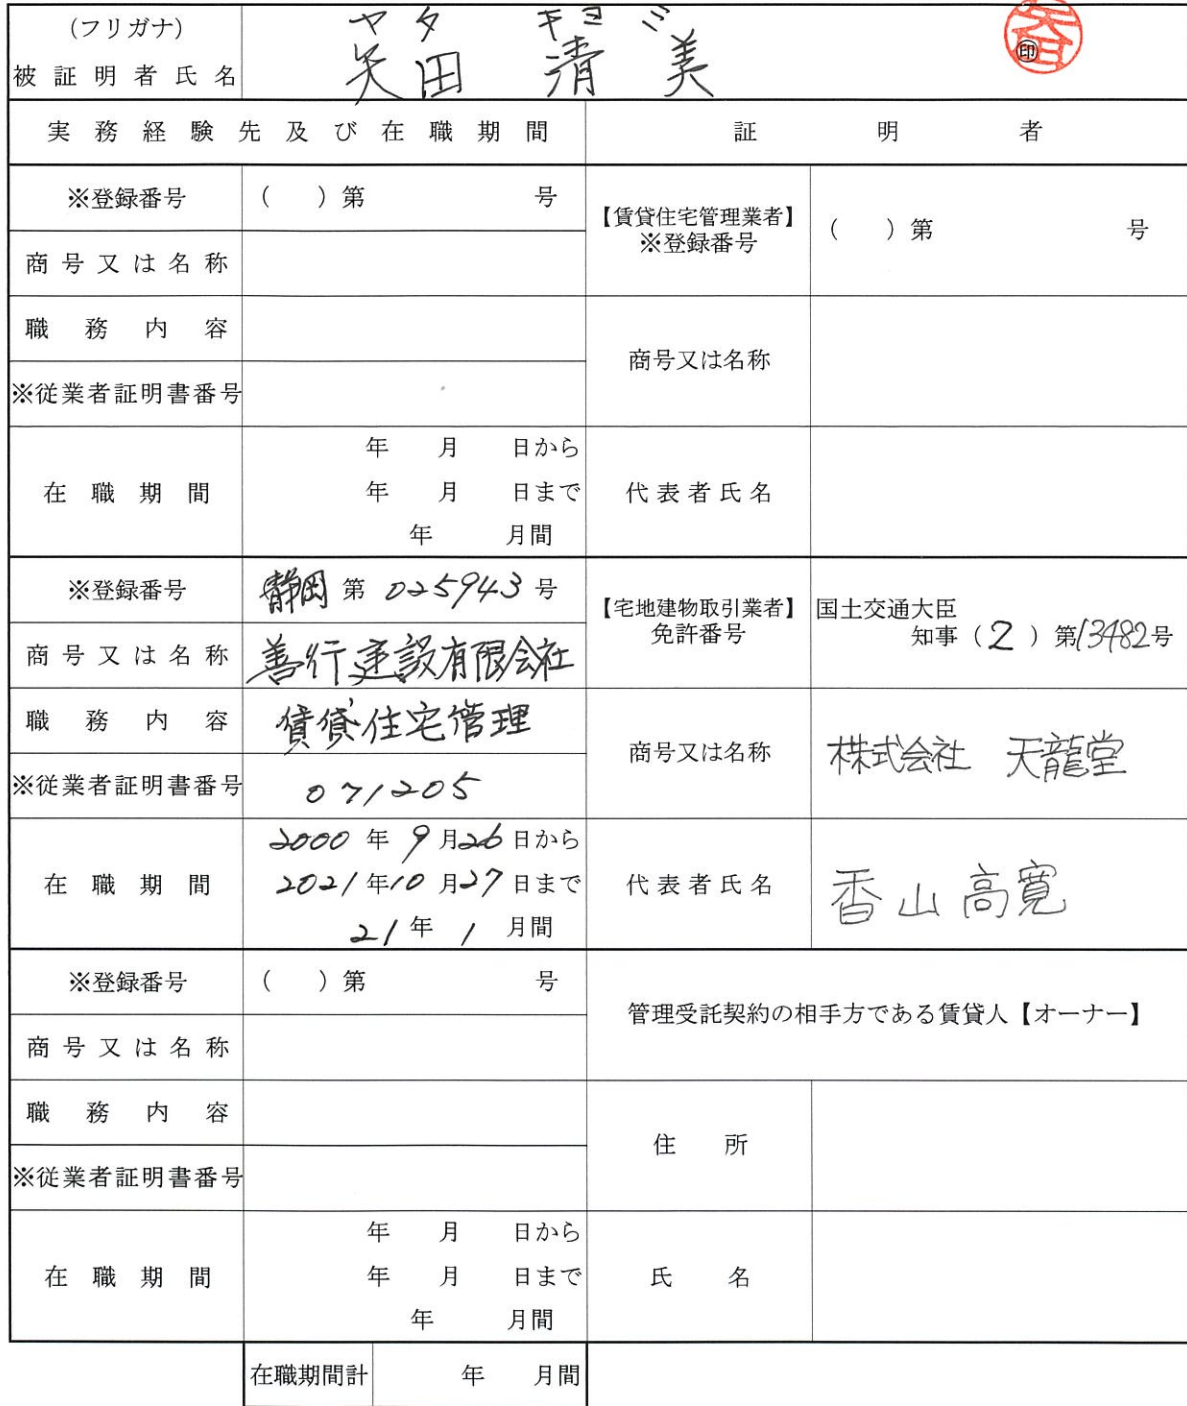 (フリガナ) ヤタ キヨミ
被証明者氏名 矢田 清美 ㊞
実務経験先及び在職期間 証明者
※登録番号 ( )第 号
【賃貸住宅管理業者】
※登録番号 ( )第 号
商号又は名称
職務内容
商号又は名称
※従業者証明書番号
在職期間
年 月 日から
年 月 日まで
年 月間
代表者氏名
※登録番号 静岡 第 025943 号
【宅地建物取引業者】
免許番号
国土交通大臣
知事(2)第13482号
商号又は名称 善行建設有限会社
職務内容 賃貸住宅管理
商号又は名称 株式会社 天龍堂
※従業者証明書番号 071205
在職期間
2000年9月26日から
2021年10月27日まで
21年1月間
代表者氏名 香山高寛
※登録番号 ( )第 号
管理受託契約の相手方である賃貸人【オーナー】
商号又は名称
職務内容
住所
※従業者証明書番号
在職期間
年 月 日から
年 月 日まで
年 月間
氏名
在職期間計 年 月間